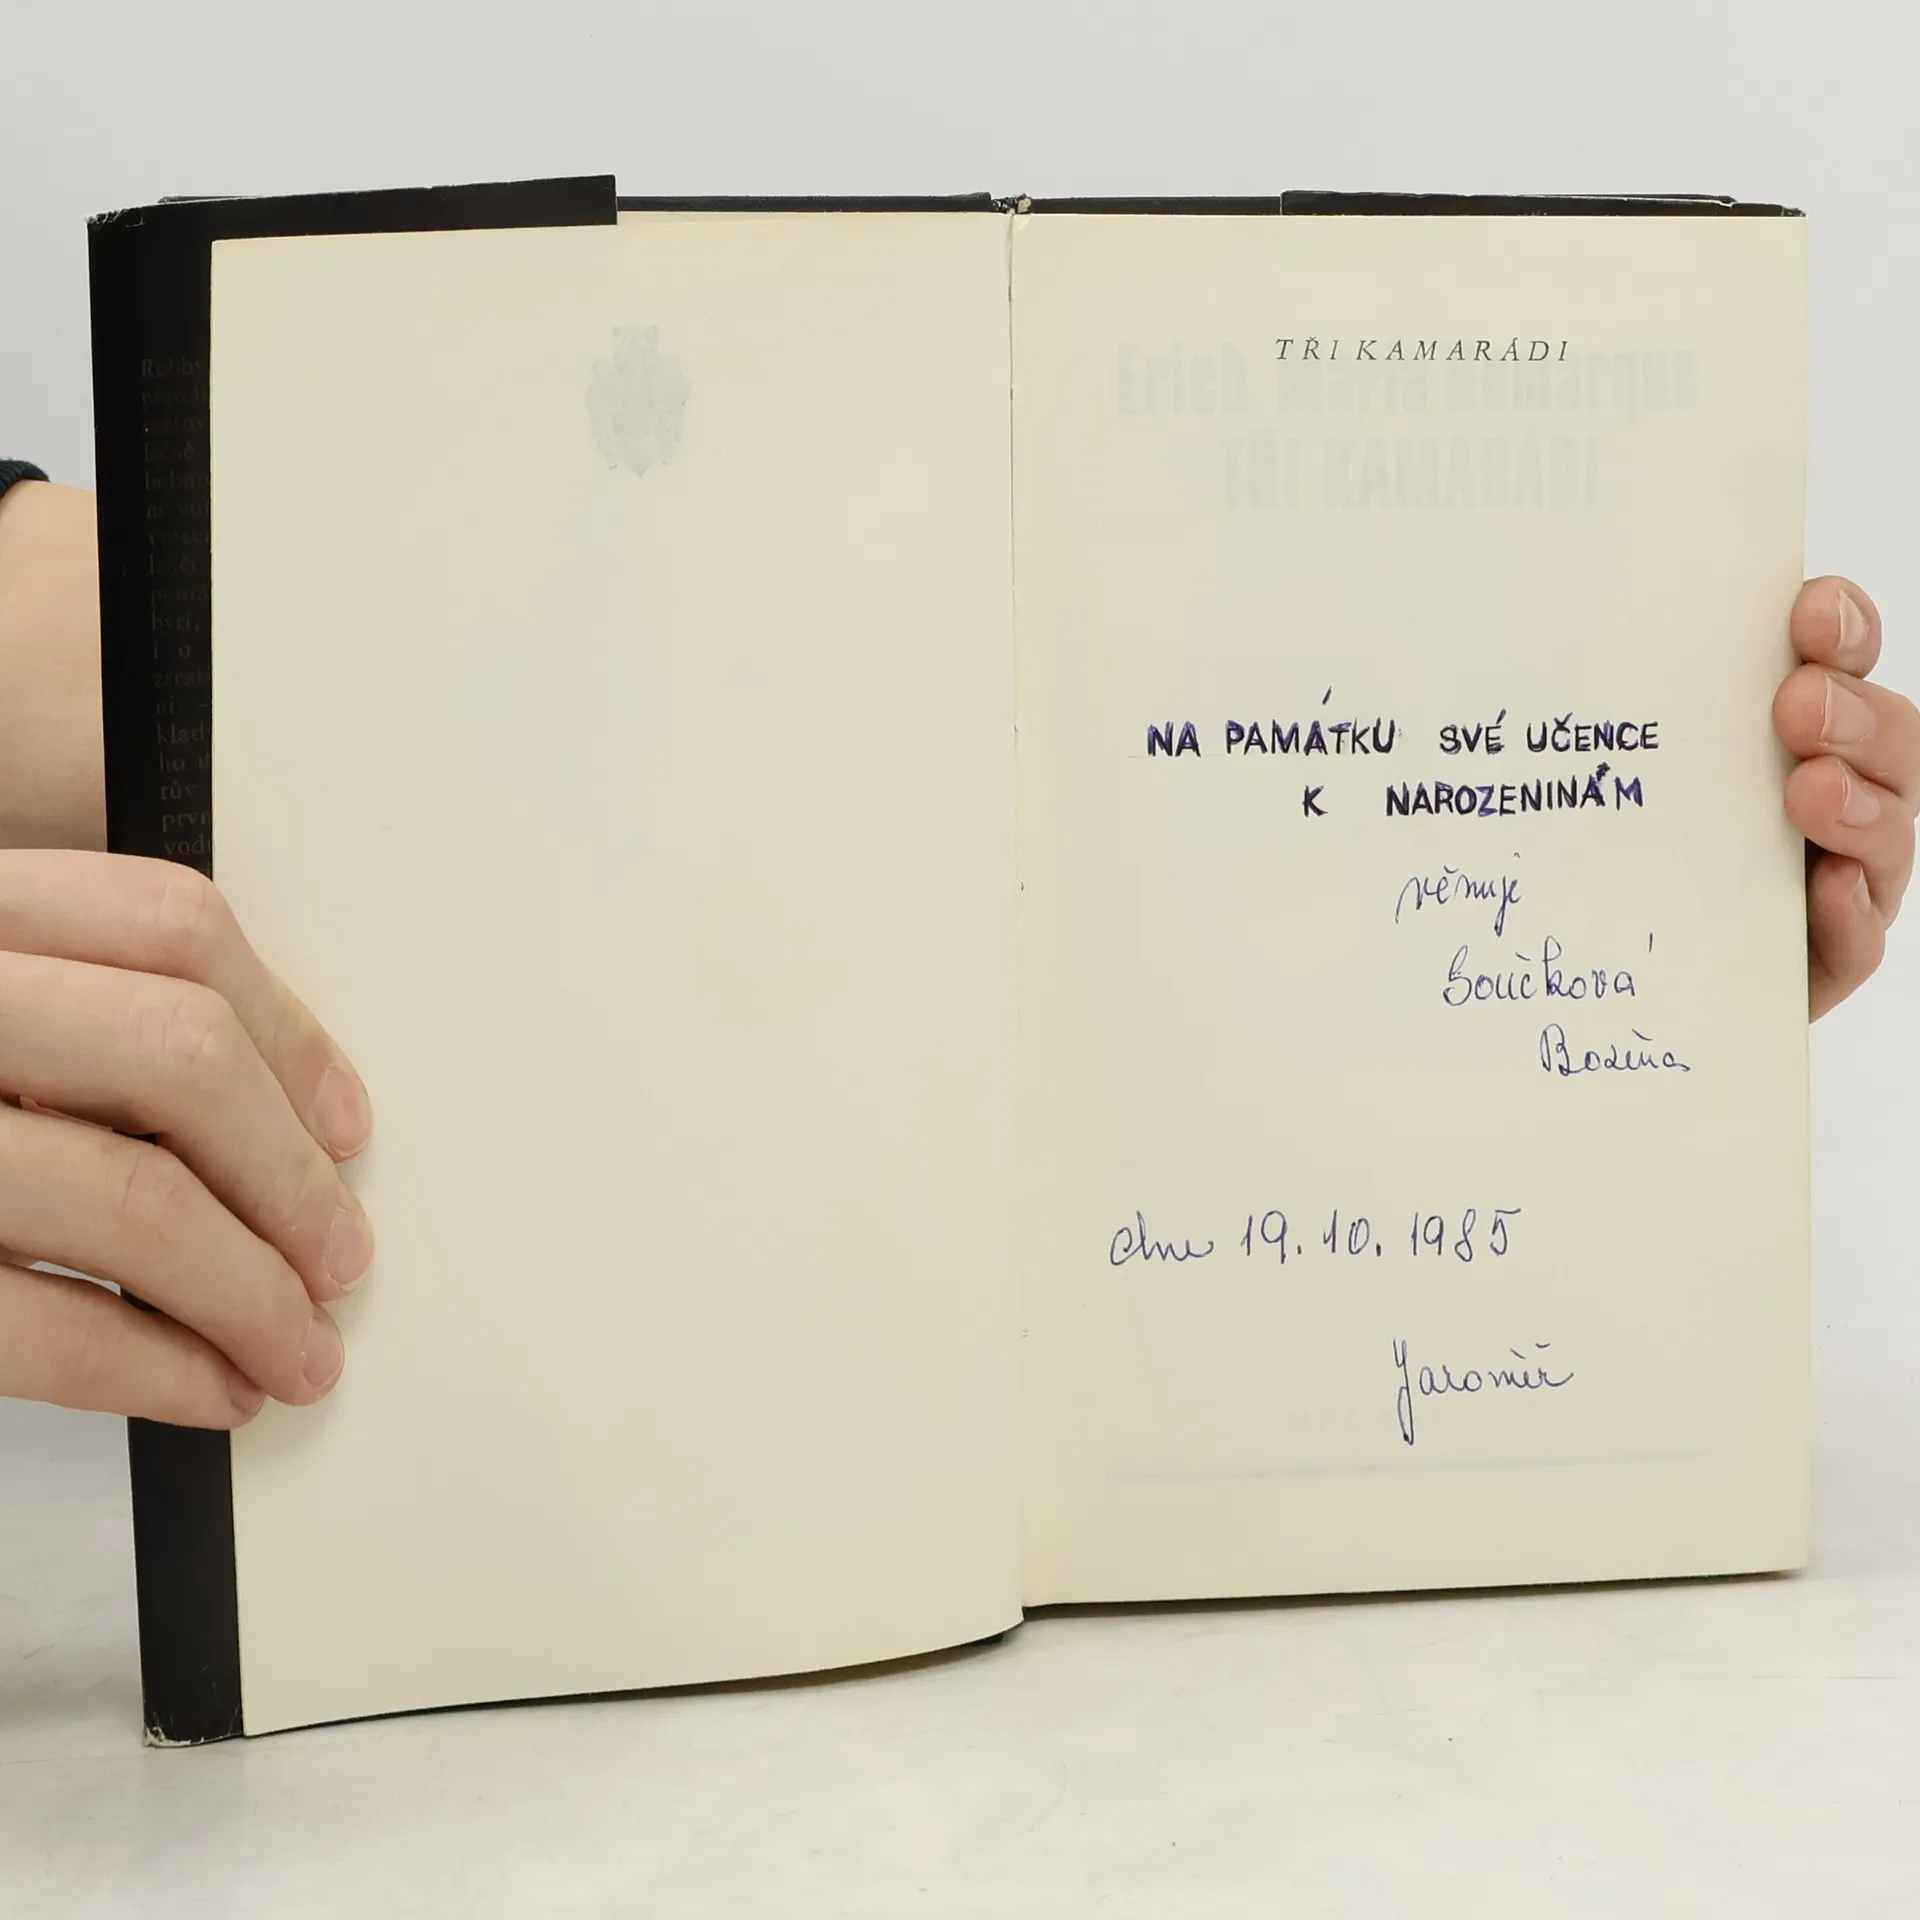 TŘI KAMARÁDI
Erich Maria Remarque
TŘI KAMARÁDI
NA PAMÁTKU SVÉ UČENCE
K NAROZENINÁM
věnuje
Součková
dne 19. 10. 1985
Jaroměř